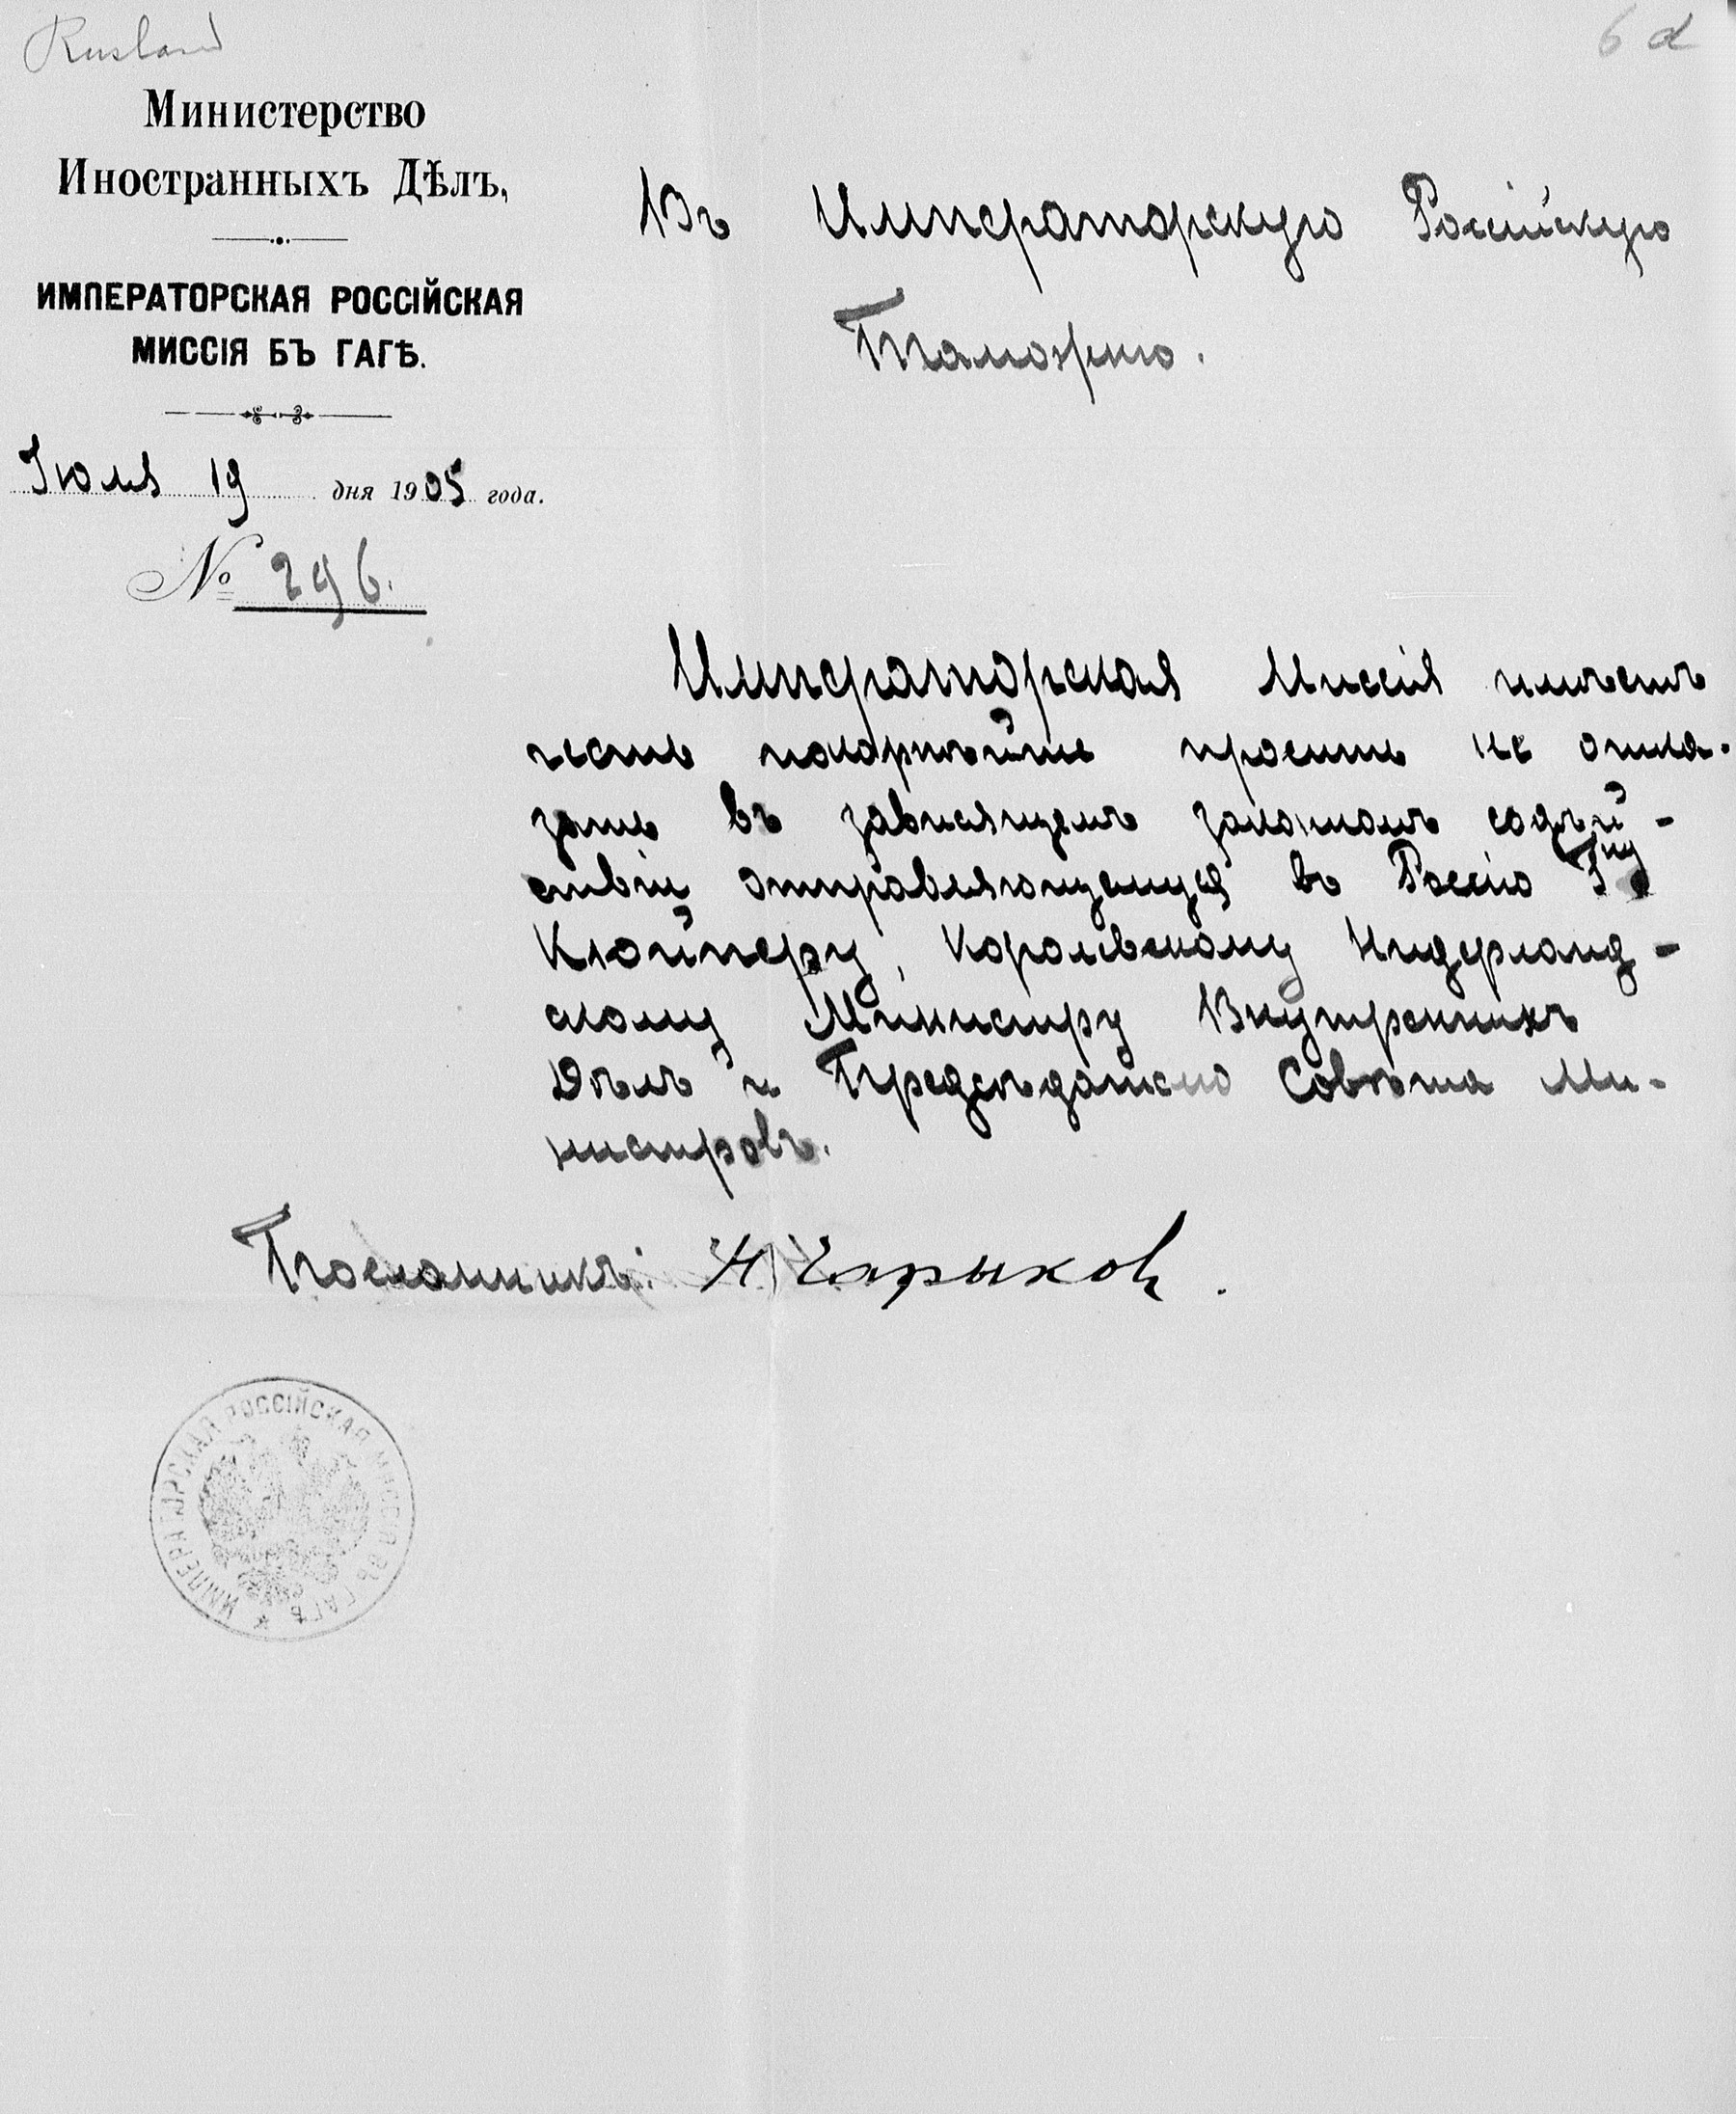 Rusland
6 d
Министерство
Иностранныхъ Дѣлъ,
ИМПЕРАТОРСКАЯ РОССІЙСКАЯ
МИССІЯ БЪ ГАГѢ.
Іюля 19 дня 1905 года.
№ 296.
Въ Императорскую Россійскую
Таможню.
Императорская Миссія имѣетъ
честь покорнѣйше просить не отка-
зать въ зависящемъ законномъ содѣй-
ствіи отправляющемуся въ Россію Гну
Кюйперу, Королевскому Нидерланд-
скому Министру Внутреннихъ
Дѣлъ и Предсѣдателю Совѣта Ми-
нистровъ.
Посланникъ: Н Чарыковъ.
ИМПЕРАТОРСКАЯ РОССІЙСКАЯ МИССІЯ ВЪ ГАГѢ